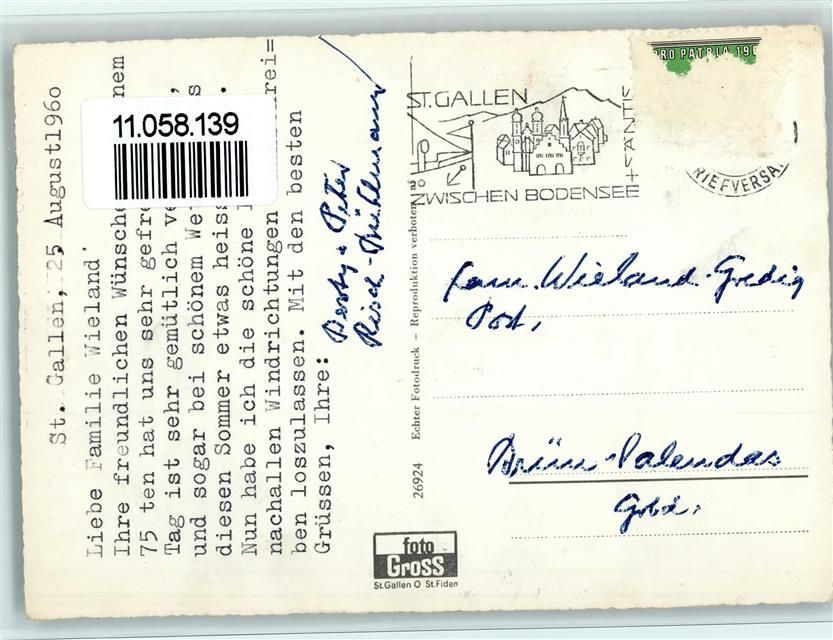 St. Gallen, 25 August1960
Liebe Familie Wieland'
Ihre freundlichen Wünsche nem
75 ten hat uns sehr gefre
Tag ist sehr gemütlich ve ,
und sogar bei schönem We s
diesen Sommer etwas heiss .
Nun habe ich die schöne rei=
nachallen Windrichtungen
ben loszulassen. Mit den besten
Grüssen, Ihre:
Peter
11.058.139
26924 Echter Fotodruck – Reproduktion verboten
foto
Gross
St.Gallen O St.Fiden
ST.GALLEN
ZWISCHEN BODENSEE
+SÄNTIS
PRO PATRIA 196
RIEFVERSA
Fam. Wieland-Gredig
Post,
Brün-Valendas
Grbd.